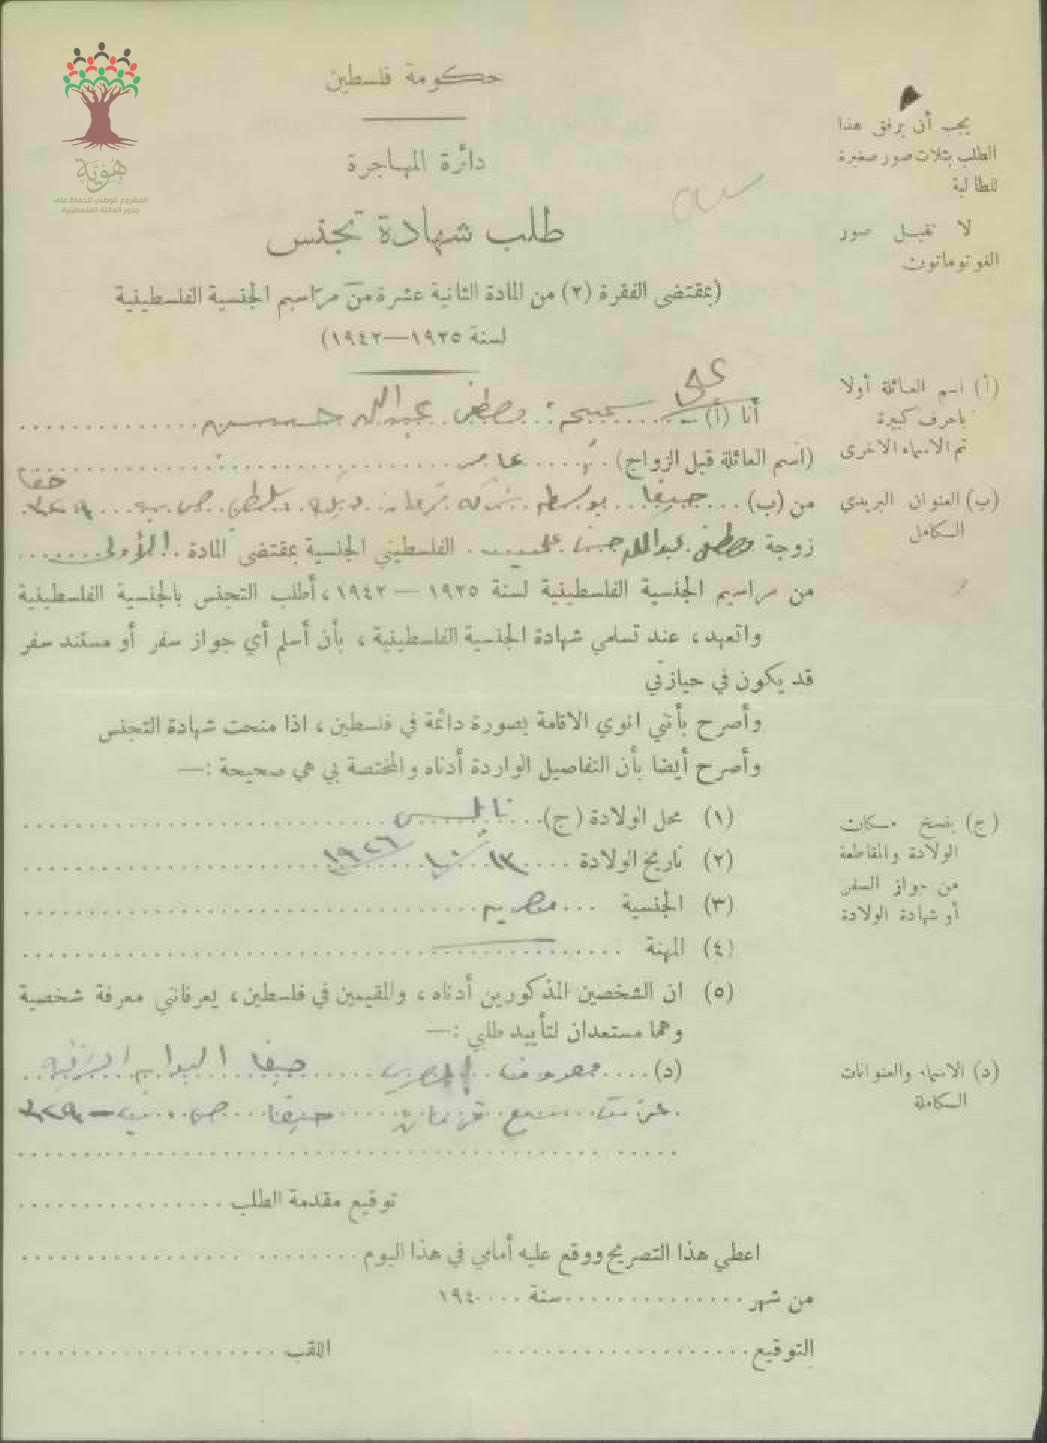 هُوِيَّة
المشروع الوطني للحفاظ على
جذور العائلة الفلسطينية
حكومة فلسطين
دائرة المهاجرة
طلب شهادة تجنس
(بمقتضى الفقرة (٢) من المادة الثانية عشرة من مراسيم الجنسية الفلسطينية
لسنة ١٩٢٥—١٩٤٢)
يجب أن يرفق هذا
الطلب بثلاث صور صغيرة
للطالبة
لا تقبل صور
الفوتوماتون
علي
أنا (أ) سميحة مصطفى عبدالله حسن
(أ) اسم العائلة أولا
باحرف كبيرة
ثم الاسماء الاخرى
(اسم العائلة قبل الزواج) عامر
حيفا
من (ب) حيفا بواسطة شركة قزمان ص ب ٣٢٩
(ب) العنوان البريدي
الكامل
زوجة مصطفى عبدالله حسن علي الفلسطيني الجنسية بمقتضى المادة الأولى
من مراسيم الجنسية الفلسطينية لسنة ١٩٢٥ — ١٩٤٢، أطلب التجنس بالجنسية الفلسطينية
واتعهد، عند تسلمي شهادة الجنسية الفلسطينية، بأن أسلم أي جواز سفر أو مستند سفر
قد يكون في حيازتي
وأصرح بأنني انوي الاقامة بصورة دائمة في فلسطين، اذا منحت شهادة التجنس
وأصرح أيضا بأن التفاصيل الواردة أدناه والمختصة بي هي صحيحة :—
(١) محل الولادة (ج) نابلس
(٢) تاريخ الولادة ١٣ / ١٠ / ١٩٢٦
(٣) الجنسية مصرية
(٤) المهنة
(ج) بنسخ مكان
الولادة والمقاطعة
من جواز السفر
أو شهادة الولادة
(٥) ان الشخصين المذكورين أدناه، والمقيمين في فلسطين، يعرفانني معرفة شخصية
وهما مستعدان لتأييد طلبي :—
(د) معروف حيفا البوابة الشرقية
عزت قزمان حيفا ص ب – ٣٢٩
(د) الاسماء والعنوانات
الكاملة
توقيع مقدمة الطلب
اعطي هذا التصريح ووقع عليه أمامي في هذا اليوم
من شهر سنة ١٩٤٠
التوقيع اللقب